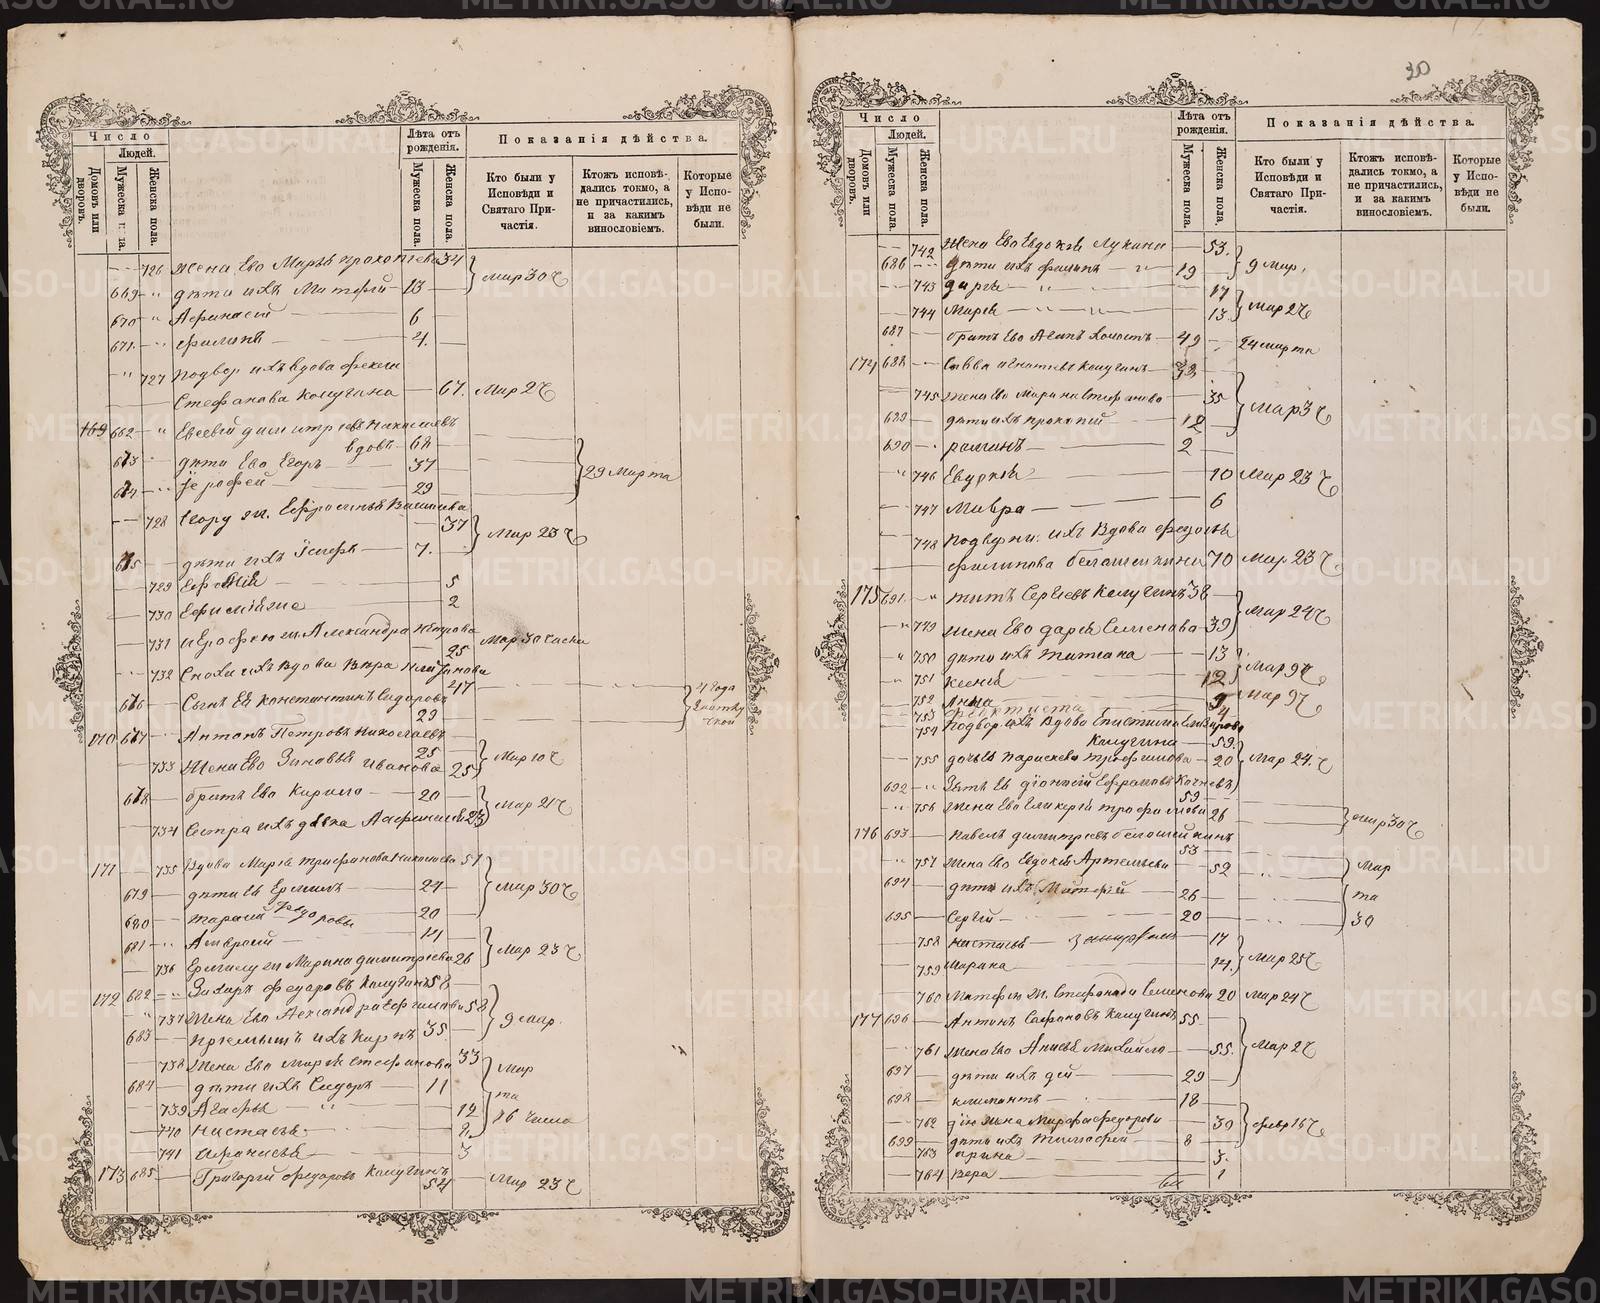 30
Число
Людей.
Домовъ или дворовъ.
Мужеска пола.
Женска пола.
Лѣта отъ рожденія.
Мужеска пола.
Женска пола.
Показанія дѣйства.
Кто были у Исповѣди и Святаго Причастія.
Ктожъ исповѣдались токмо, а не причастились, и за какимъ винословіемъ.
Которые у Исповѣди не были.
726 жена Ево Марья прокопіева 34
669 " дѣти ихъ Матѳей 13
Мар 30 ч
670 " Афинасій 6
671 филипъ 4
" 727 подвор ихъ вдова фекли
Стефанова Калугина 67. Мар 2 ч
169 662 " Евсевій димитріевъ Николаевъ
вдовъ 68
673 дѣти Ево Егоръ 37
29 Марта
674 Іерофей 29
728 Егору ж. Ефросинья Васильева
37 Мар 23 ч
675 дѣти ихъ Іосифъ 7.
729 5
730 Ефимія 2
731 Иерофею ж. Александра Петрова
25 Мар 30 часла
732 Сноха ихъ вдова Вѣра
47
676 Сынъ Ея Константинъ Сидоровъ
29
4 года
170 677 Антонъ Петровъ Николаевъ
25
733 Жена Ево Зиновья Иванова 25
Мар 10 ч
678 братъ Ево Кирило 20
Мар 21 ч
734 Сестра ихъ дѣвка 23
171 735 Вдова Марья Трифанова Николаева 51
679 дѣти Ея Ермилъ 24
Мар 30 ч
680 Тарасий Федоровы 20
681 Амвросій 14
Мар 23 ч
736 Ермилу ж Марина димитріева 26
172 682 Захаръ федаровъ Калугинъ 58
" 737 Жена Ево Александра 58
9 мар.
683 ихъ Карпъ 35
738 Жена Ево Марья Стефанова 33
684 дѣти ихъ Сидоръ 11
Мар
та
16 числа
739 Агафья " 12
740 Настасья 8
741 Афанасья 3
173 685 Григорій федаровъ Калугинъ
54 Мар 23 ч
Число
Людей.
Домовъ или дворовъ.
Мужеска пола.
Женска пола.
Лѣта отъ рожденія.
Мужеска пола.
Женска пола.
Показанія дѣйства.
Кто были у Исповѣди и Святаго Причастія.
Ктожъ исповѣдались токмо, а не причастились, и за какимъ винословіемъ.
Которые у Исповѣди не были.
742 Жена Ево Евдокія Лукина 53.
686 дѣти ихъ филипъ 19
9 мар.
743 дарья " 17
744 Марья " 13
Мар 2 ч
687 братъ Ево Асипъ холостъ 49 24 марта
174 688 Савва игнатьевъ Калугинъ 38
745 жена Ево Марина Стефанова 35
Мар 3 ч
689 дѣти ихъ прокопій 12
690 романъ 2
" 746 Евдокія 10 Мар 23 ч
747 Мавра 6
748 Подворн. ихъ Вдова федосья
филипова белошейкина 70 Мар 23 ч
175 691 " титъ Сергіевъ Калугинъ 38
" 749 Жена Ево дарья Семенова 39
Мар 24 ч
" 750 дѣти ихъ Татиана 13
" 751 Ксенія 12
Мар 9 ч
752 Анна 9
Мар 9 ч
753 феоктиста 4
754 Подвор. ихъ Вдова
Калугина 59.
755 дочь Ея Параскева трофимова 20
Мар 24. ч
692 " Зять Ея діонисій
59
" 756 Жена Ево Гликерія трофимова 26
Мар 30 ч
176 693 павелъ димитріевъ белошейкинъ
53
" 757 Жена Ево Евдокія Артемьева 52
694 дѣти ихъ Матѳей 26
695 Сергій 20
Мар
та
30
758 Настасья замужемъ 17
759 Марина 14.
Мар 25 ч
760 Матфею Ж. Стефанида Семенова 20 Мар 24 ч
177 696 Антонъ Сафоновъ Калугинъ 55
761 Жена Ево Анисья Михайло 55.
Мар 2 ч
697 дѣти ихъ 29
698 климантъ 18
762 жена Марфа федорова 30
февр 16 ч
699 дѣти ихъ Тимофей 8
763 арина 3.
764 Вера 1
METRIKI.GASO-URAL.RU